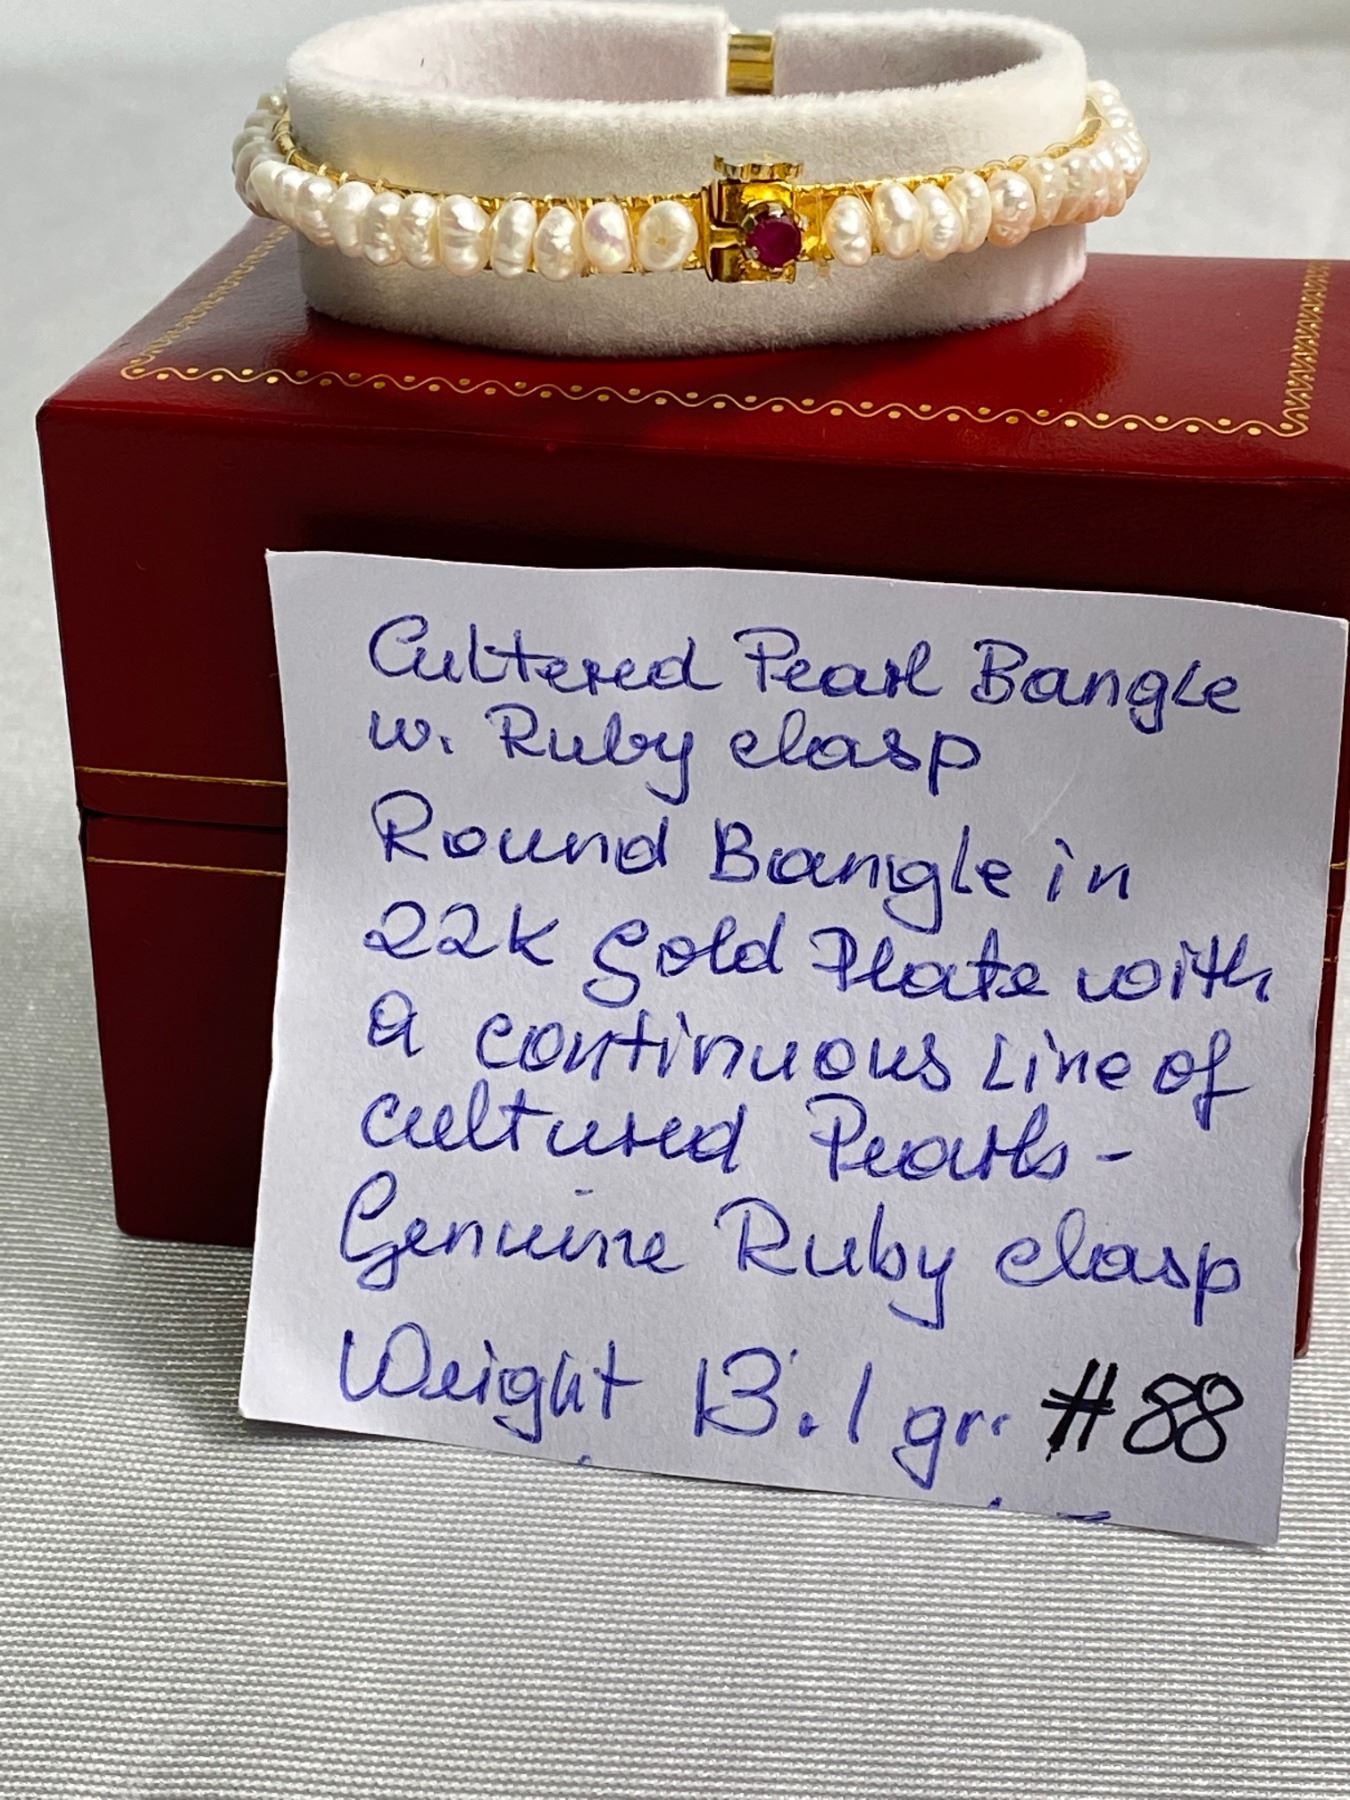 Cultered Pearl Bangle
w. Ruby clasp
Round Bangle in
22K Gold Plate with
a continuous Line of
cultured Pearls -
Genuine Ruby clasp
Weight 13.1 gr. #88